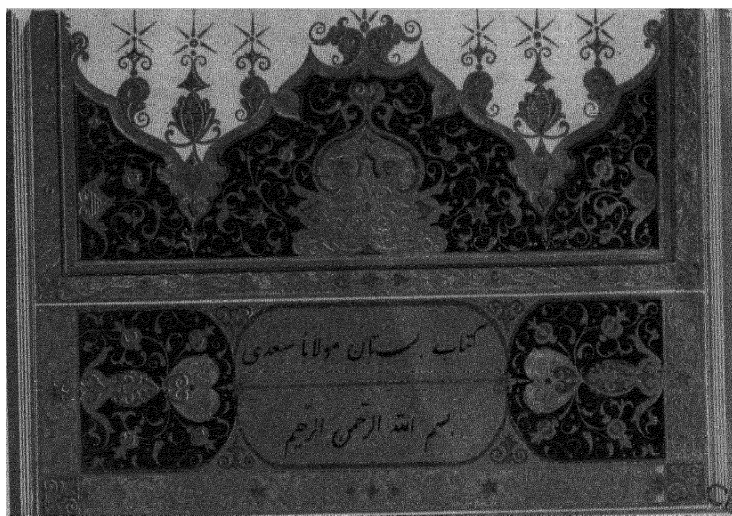 کتاب بستان مولانا سعدی
بسم الله الرحمن الرحیم